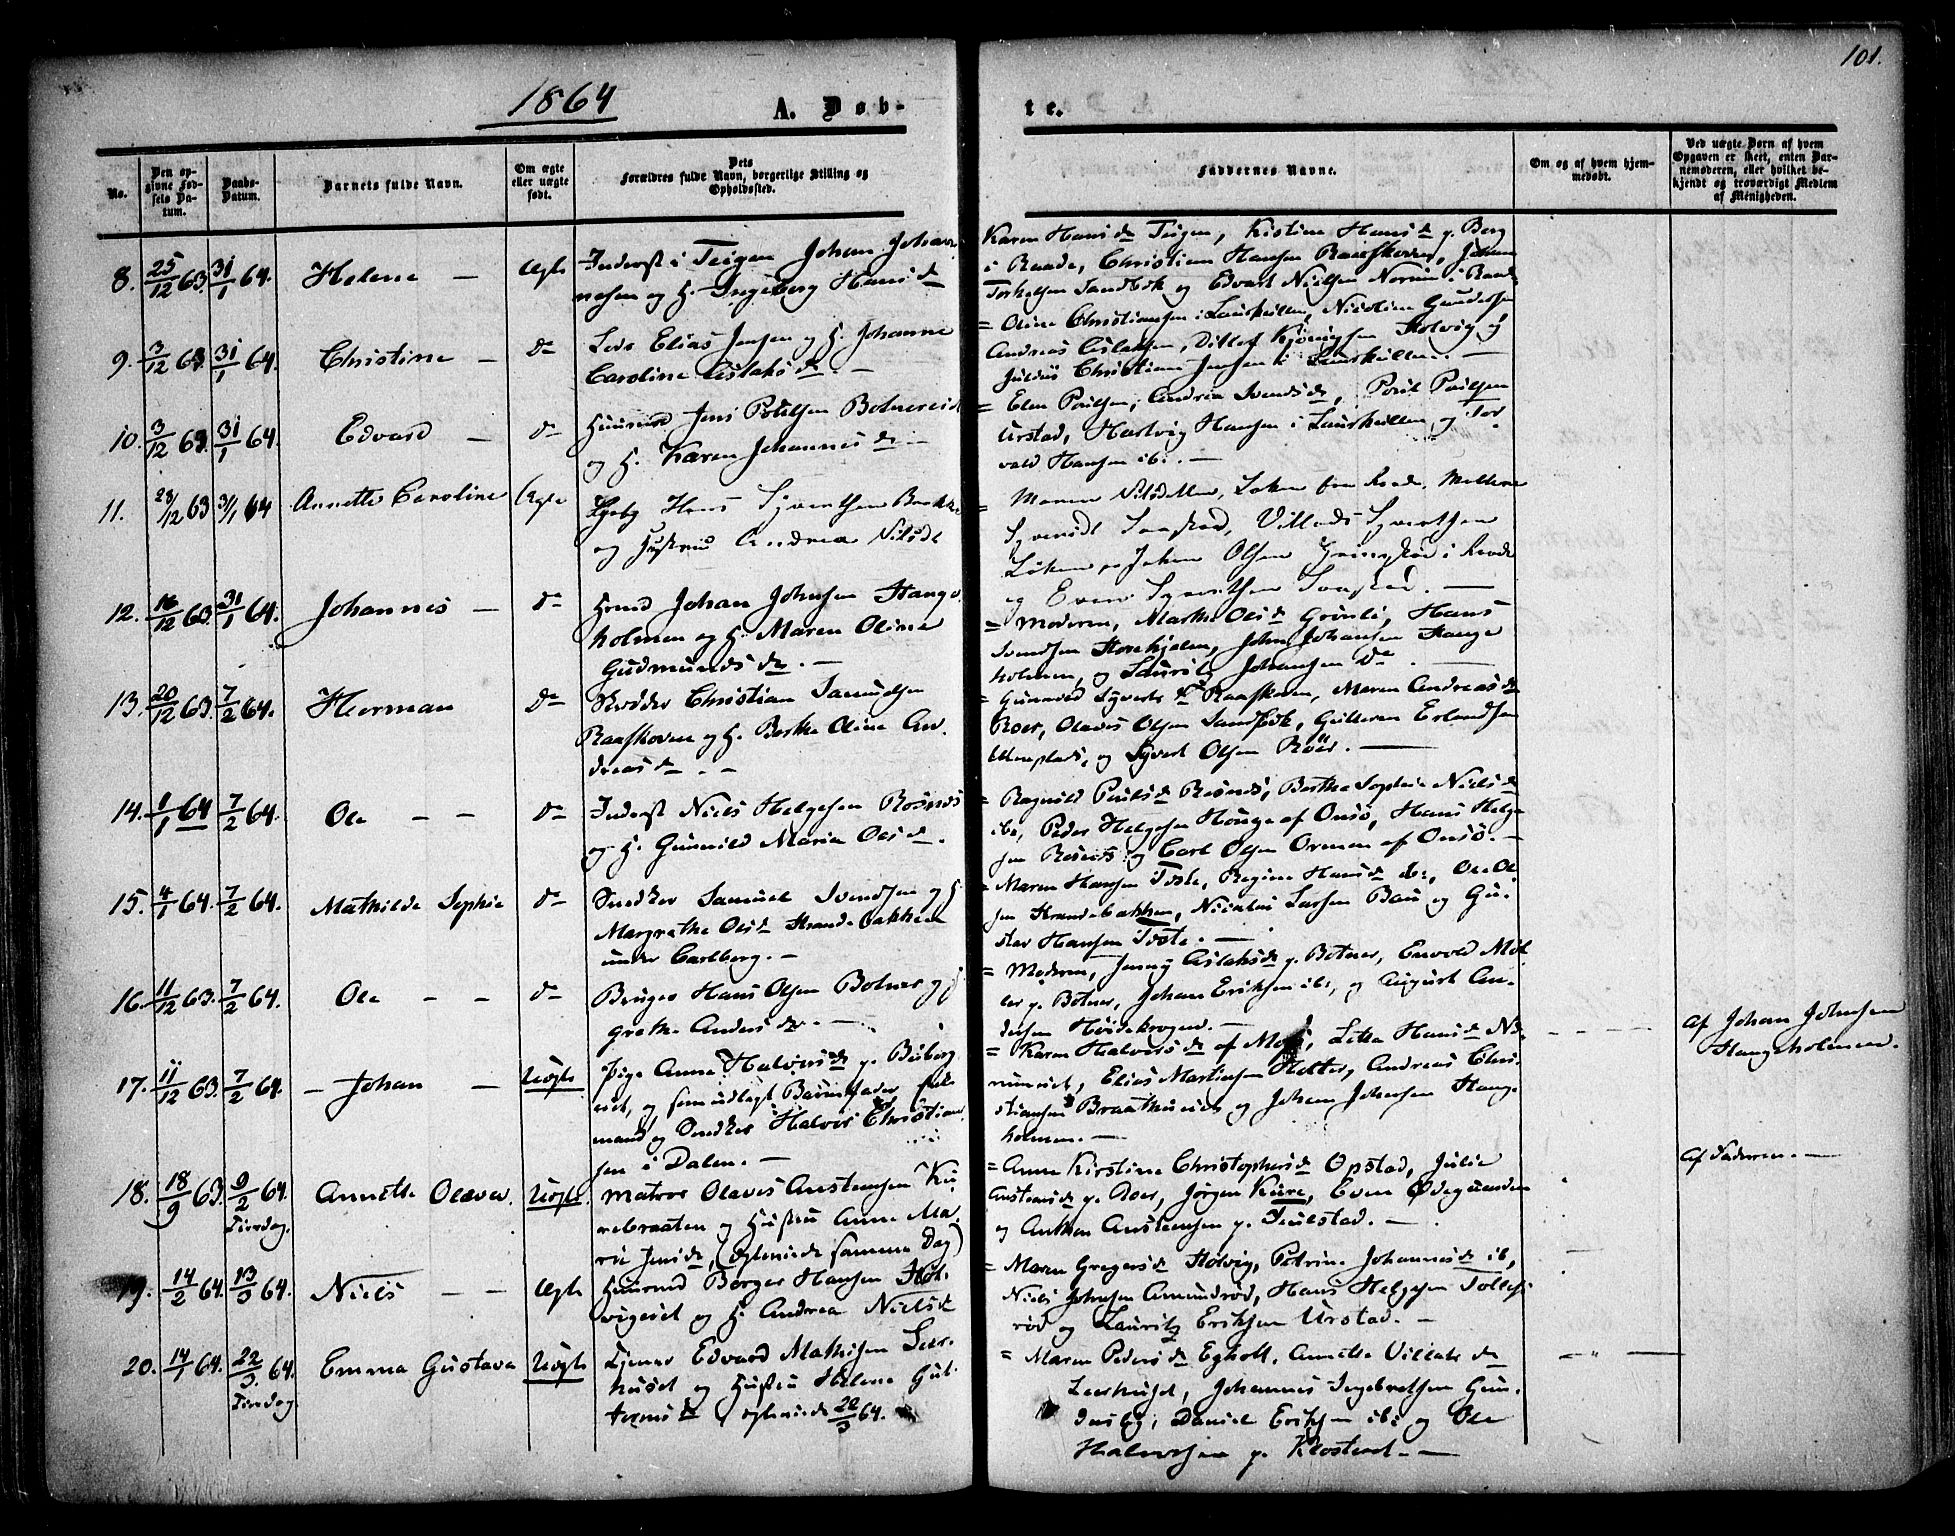 101.
1864
A. Døb-
te.
No.
Den opgivne Fødsels Datum.
Daabs-Datum.
Barnets fulde Navn.
Om ægte eller uægte født.
Dets Forældres fulde Navn, borgerlige Stilling og Opholdssted.
Faddernes Navne.
Om og af hvem hjemmedøbt.
Ved uægte Børn af hvem Opgaven er skeet, enten Barnemoderen, eller hvilket bekjendt og troværdigt Medlem af Menigheden.
8. 25/12 63. 31/1 64. Helene — Ægte
Inderst i Teigen Johan Johan-
nesen og H. Ingeborg Hansdr
Karen Hansdr Teigen, Kistine Hansdr p. Berg
i Raade, Christian Hansen Raaeskoven, Johan
Torkelsen Sandbæk og Edvart Nielsen i Raade
9. 3/12 63. 31/1 64. Christine — do
Elias Jensen og H. Johanne
Caroline Aslaksdr. —
= Oline Christiansen i Laurkullen, Nicoline Gundersen
Andreas Aslaksen, Ditlef Kjønigsen Stolvig og
Julius Christian Jensen i Laurkullen. —
10. 3/12 63. 31/1 64. Edvard — do
Huusmd Jens Poulsen Botnereiet
og H. Karen Johannesdr —
= Elen Poulsen, Andrea Svendsdr, Poul Poulsen
Urstad, Hartvig Hansen i Laurkullen, og Tor-
vald Hansen ibi. —
11. 28/12 63 31/1 64 Annette Caroline Ægte
Hans Syvertsen
og Hustru Andrea Nilsdt
= Maren Løken fra Raade,
Syversdt Villads Syvertsen
Løken, Johan Olsen i Raade
og Even Syvertsen —
12. 16/12 63. 31/1 64. Johannes — do
Johan Johnsen Stange-
holmen og H. Maren Oline
Gudmundsdr. —
= Moderen, Marthe Olsdr Grønli, Hans
Svendsen John Johansen Stange-
holmen, og Lauritz Johansen do. —
13. 20/12 63. 7/2 64. Herman do
Skredder Christian Samuelsen
Raaeskoven og H. Berthe Oline An-
dreasdr. —
= Gunnild Syvertsdr Raaeskoven, Maren Andreasdr
Roer, Olaves Olsen Sandbæk, Gulleren Erlandsen
og Syvert Olsen Röer. —
14. 1/1 64 7/2 64. Ole — — do
Inderst Niels Helgesen Rosnes
og H. Gunnild Maria Olsdr.
= Ragnild Poulsdr Rosnes, Berthe Sophie Nielsdr
ibi, Peder Helgesen Houge af Onsø, Hans Helge-
sen Rosnes og Carl Olsen Ormen af Onsö. —
15. 4/1 64. 7/2 64. Mathilde Sophie do
Snedker Samuel Svendsen og H.
Margrethe Olsdr Strandebakken
under Carlberg. —
= Maren Hansen Toste, Regine Hansdr ibi, Ole Ol-
sen Strandebakken, Nicolai Larsen Bau og Gu-
stav Hansen Toste. —
16. 11/12 63. 7/2 64. Ole — — do
Bruger Hans Olsen Botner og H.
Grethe Andersdr. —
= Moderen, Jenny Aslaksdr p. Botner, Enevold Møl-
ler p. Botner, Johan Eriksen ibi, og August An-
dersen Höidekrogen. —
17. 11/12 63. 7/2 64. — Johan — Uægte
Pige Anna Halvorsdr p. Büberg-
eiet, og som udlagt Barnefader
mand og Snedker Halvor Christian-
sen i Dalen. —
= Karen Halvorsdr af Moss, Hansdr
Elias Martinsen Hetter, Andreas Chri-
stiansen og Johan Johnsen Stange-
holmen. —
Af Johan Johnsen
Stangeholmen.
18. 18/9 63. 9/2 64. Tirsdag. Annette Olava. Uægte.
Matros Olaves Anstensen Ku-
rebraaten og Hustru Anne Ma-
rie Jensdr, (Ægteviede samme Dag)
= Anne Kirstine Christophersdr Opstad, Julie
Anstensdr p. Roer, Jörgen Kure, Even Ødegaarden
og Anthon Anstensen p. —
Af Faderen. —
19. 14/2 64. 13/3 64. Niels — — Ægte
Huusmd Borger Hansen Stol-
vigeiet og H. Andrea Nielsdr
= Maren Gregersdr Stolvig, Petrine Johannesdr ib,
Niels Johnsen Amundrød, Hans Helgesen Tollefs-
rød og Lauritz Eriksen Urstad. —
20. 14/1 64. 22/3 64. Tirsdag Emma Gustava Uægte
Tjener Edvard Mathisen Leer-
huset og Hustru Helene Gut-
tormsdr (ægteviede 22/3 64.
= Maren Pedersdr Egholt, Annette dr
Leerhuset, Johannes Ingebretsen Gun-
Daniel Eriksen ibi og Ole
Halvorsen p. Klosteret. —